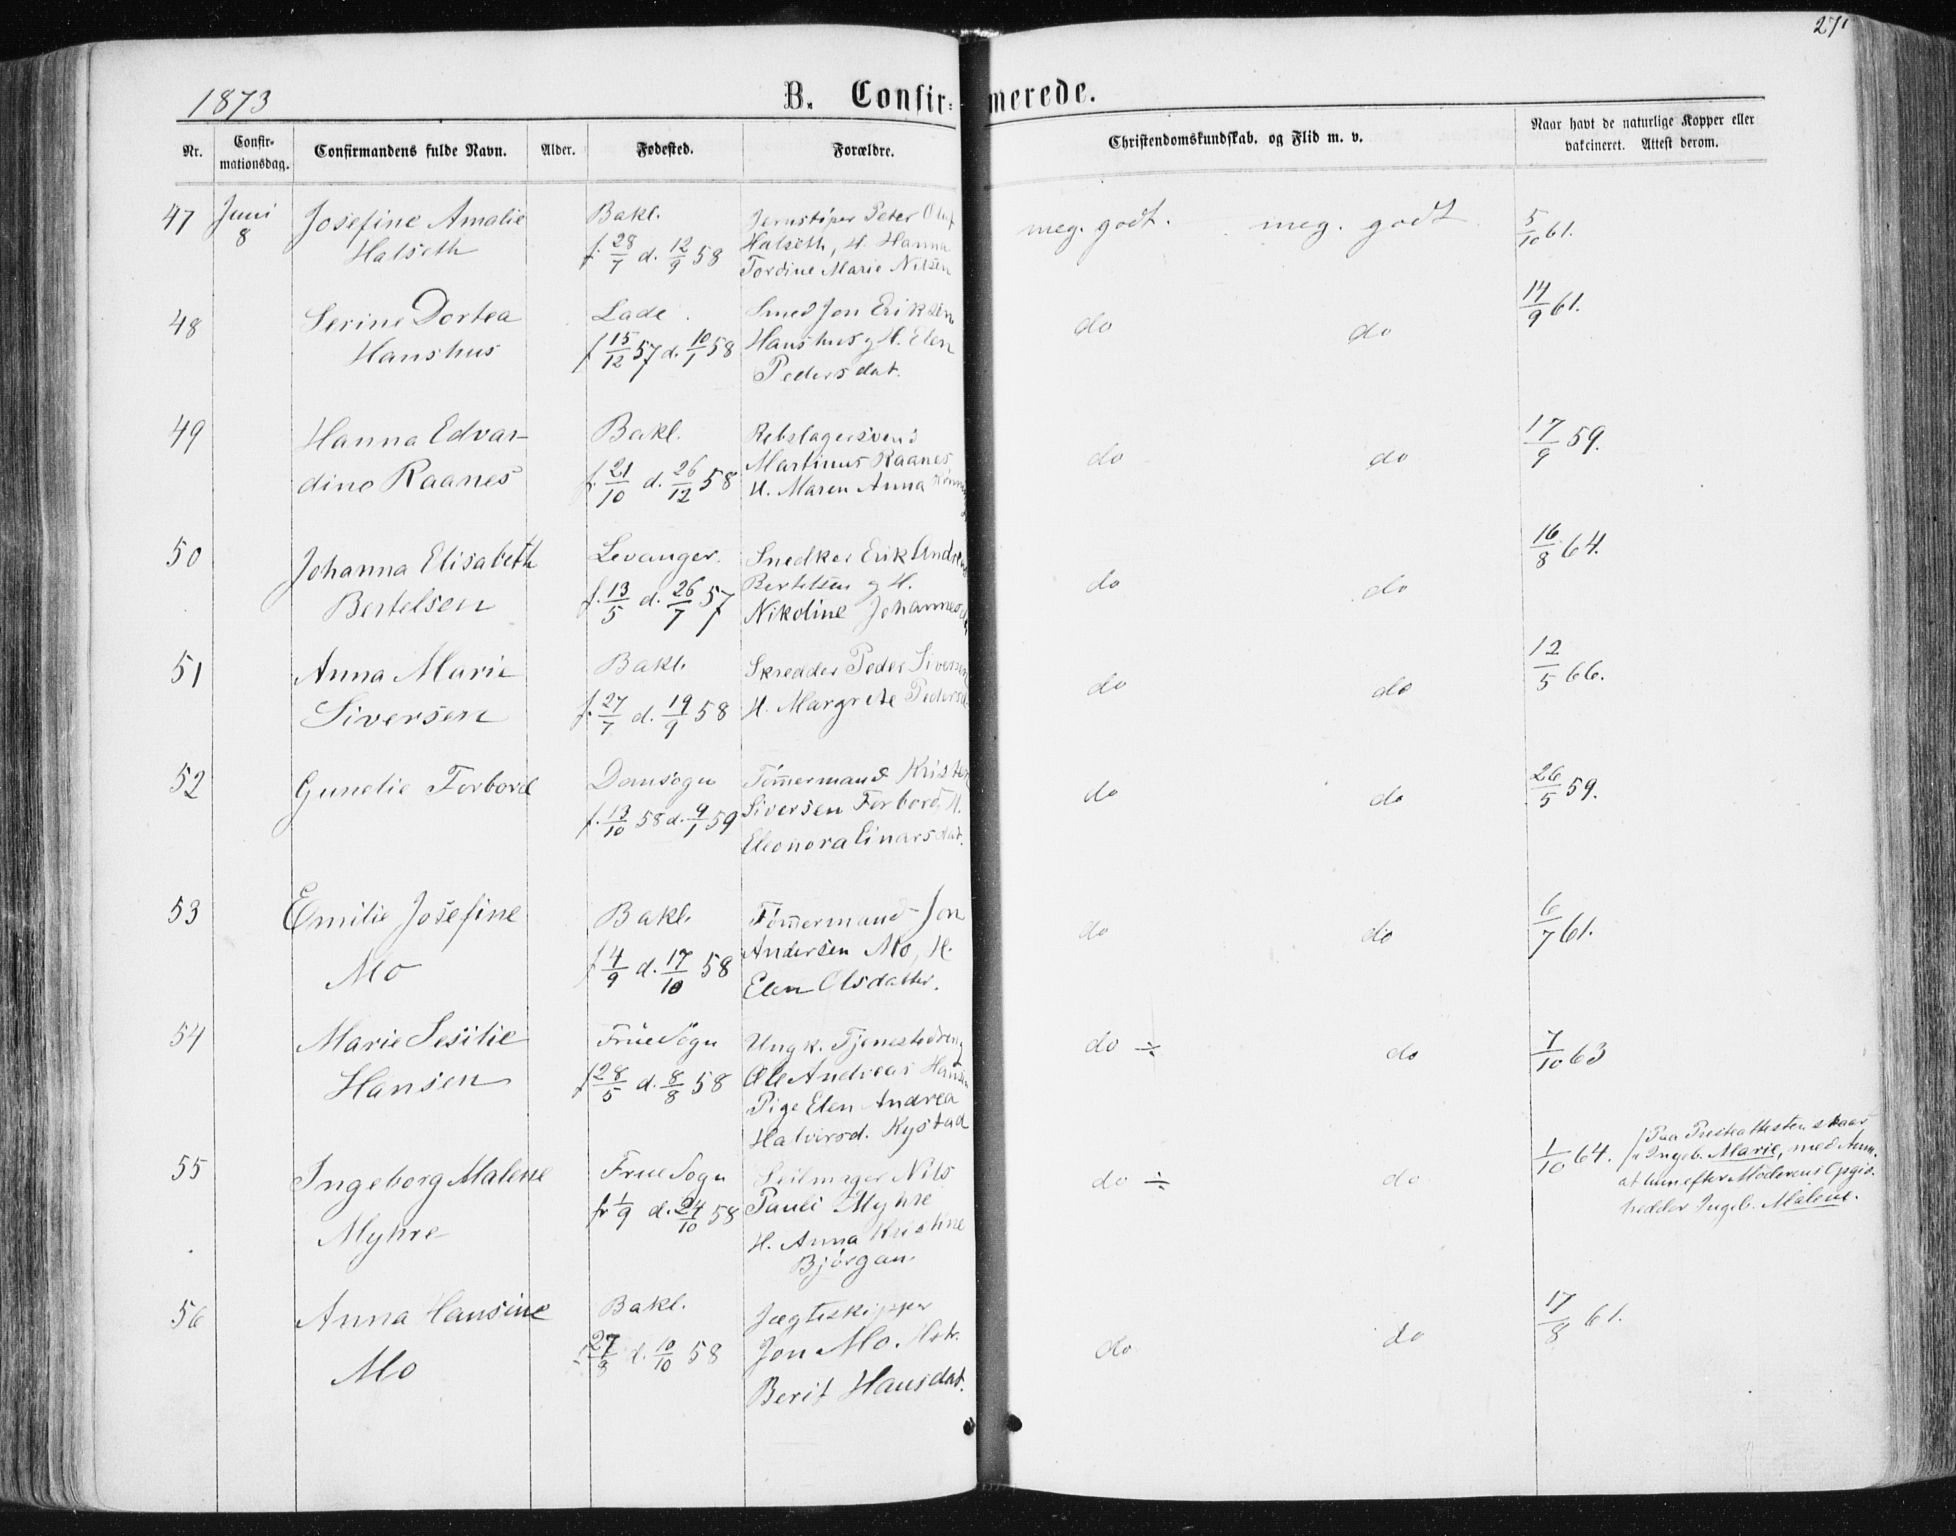 271
1873
B. Confir-merede.
Nr. Confir-mationsdag. Confirmandens fulde Navn. Alder. Fødested. Forældre. Christendomskundskab. og Flid m. v. Naar havt de naturlige Kopper eller vakcineret. Attest derom.
47 Juni 8 Josefine Amalie Bakl. Jernstøper Peter Oluf meg. godt. meg. godt 5/10 61.
Halseth f. 28/7 d. 12/9 58 Halseth, H. Hanna
Tordine Marie Nilsen
48 Serine Dortea Lade. Smed Jon Eriksen do do 14/9 61.
Hanshus f 15/12 57 d. 10/1 58 Hanshus, H. Elen
Pedersdat.
49 Hanna Edvar- Bakl. Rebslagersvend do do 17/9 59.
dine Raanes f. 21/10 d. 26/12 58 Martinus Raanes
H. Maren Anna
50 Johanna Elisabeth Levanger. Snedker Erik Andreas do do 16/8 64.
Bertelsen f. 13/5 d. 26/7 57 Bertelsen g H.
Nikoline Johannesd
51 Anna Marie Bakl. Skredder Peder Siversen do do 12/5 66.
Siversen f. 27/7 d. 19/9 58 H. Margrete Pedersd
52 Gunelie Forbord Domsogn Tømermand Kristen do do 26/5 59.
f. 13/10 58 d. 9/1 59 Siversen Forbord, H.
Eleonora Einarsdat.
53 Emilie Josefine Bakl. Tømermand Jon do do 6/7 61.
Mo f 4/9 d. 17/10 58 Andersen Mo, H.
Elen Olsdatter.
54 Marie Sesilie Frue Sogn Ungk. Tjenestedreng do ÷ do 7/10 63
Hansen f 28/5 d. 8/8 58 Ole Andreas Hansen
Pige Elen Andrea
Halvorsd. Rystad
55 Ingeborg Malene Frue Sogn Seilmager Nils do ÷ do 1/10 64. Paa Presteattesten staar
Myhre f 1/9 d. 24/10 58 Pauli Myhre Ingeb. Marie, med Anm.
H. Anna Kristine at hun efter Moderens Opgiv.
Bjørgan hedder Ingeb. Malene.
56 Anna Hansine Bakl. Jægteskipper do do 17/8 61.
Mo 27/8 d. 10/10 58 Jon Mo. Hstr.
Berit Hansdat.